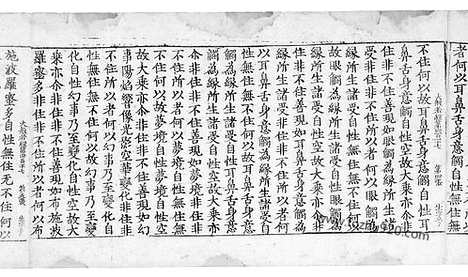 者何以耳鼻舌身意觸
不住何以故耳鼻舌身意觸自性耳
鼻舌身意觸自性空故大乘亦介非
住非不住善現如眼觸為緣所生諸
受非住非不住所以者何以眼觸為
緣所生諸受自性無住無不住何以
故眼觸為緣所生諸受自性眼觸為
緣所生諸受自性空故大乘亦介非
住非不住善現如耳鼻舌身意觸為
緣所生諸受非住非不住所以者何
以耳鼻舌身意觸為緣所生諸受自
性無住無不住何以故耳鼻舌身意
觸為緣所生諸受自性耳鼻舌身意
觸為緣所生諸受自性空故大乘亦
介非住非不住善現如夢境非住非
不住所以者何以夢境自性無住無
不住何以故夢境自性夢境自性空
故大乘亦介非住非不住善現如幻
事陽焰響像光影空花變化非住非
不住所以者何以幻事乃至變化自
性無住無不住何以故幻事乃至變
化自性幻事乃至變化自性空故大
乘亦介非住非不住善現如布施波
羅蜜多非住非不住所以者何以布
施波羅蜜多自性無住無不住何以